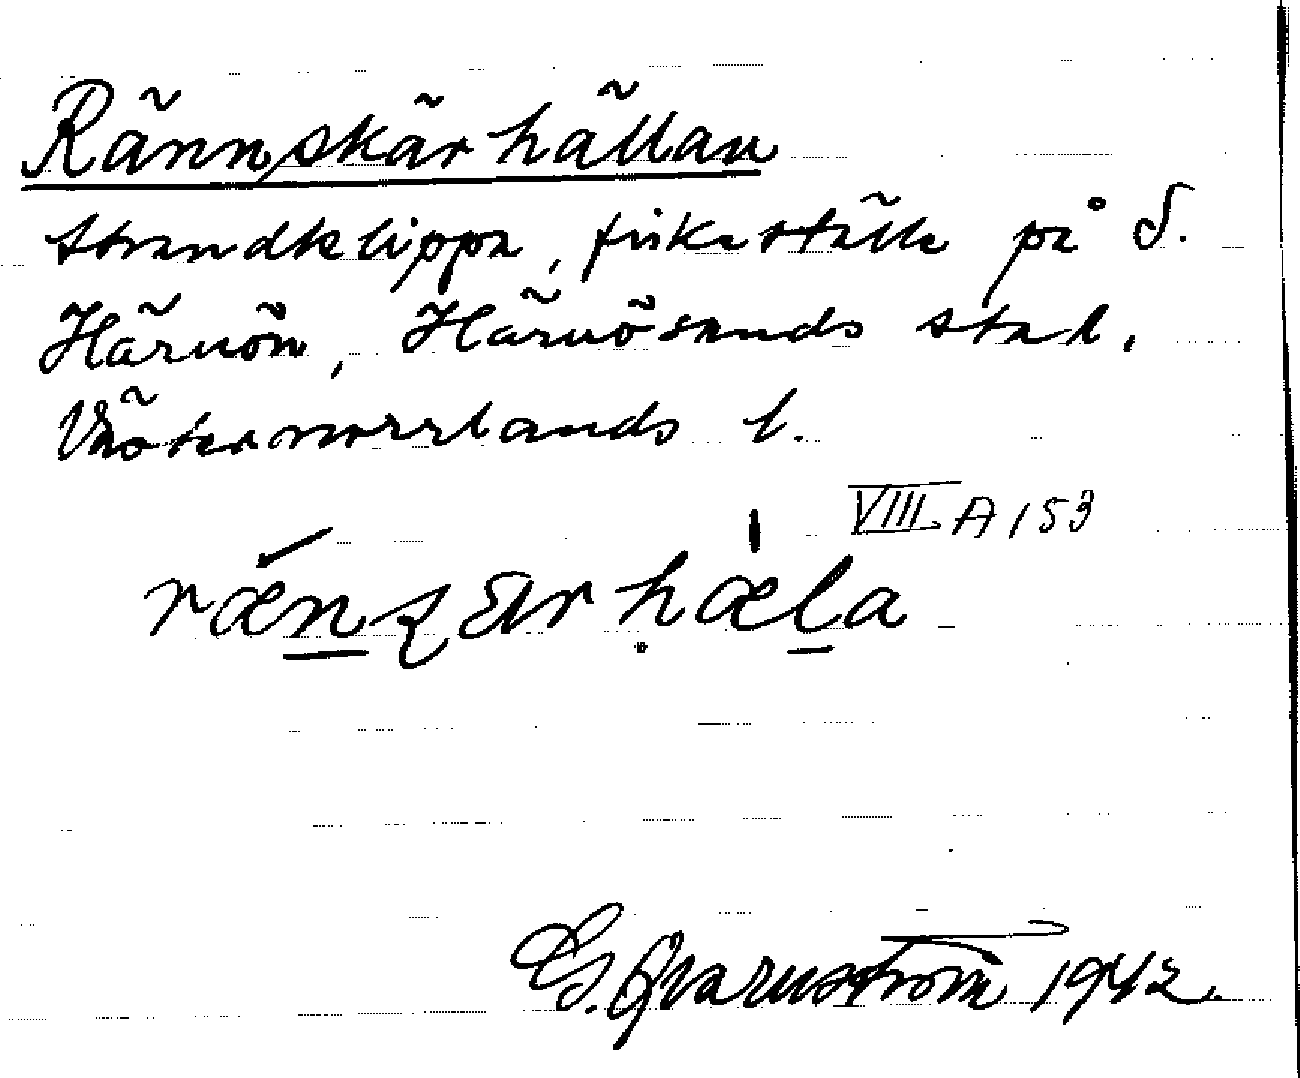 Rännskärhällan
Strandklippa, fiskeställe på S.
Härnön, Härnösands stad,
Västernorrlands l.
VIII A 153
G. Qvarnström 1942.